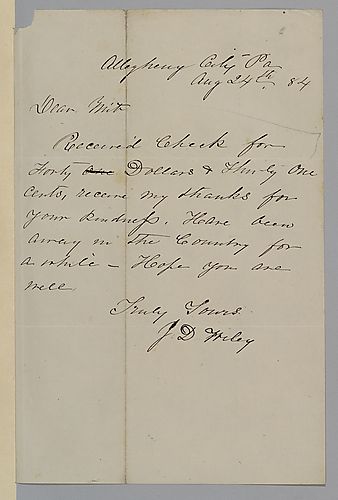 Allegheny City Pa
Aug 24th 84
Dear Mit
Received Check for
Forty one Dollars & Thirty One
cents, receive my thanks for
your kindness. Have been
away in the Country for
a while – Hope you are
well
Truly Yours
J. D. Wiley